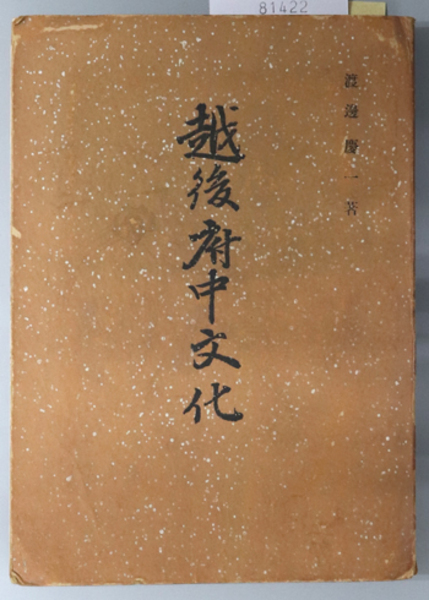 81422
渡邊慶一著
越後府中文化